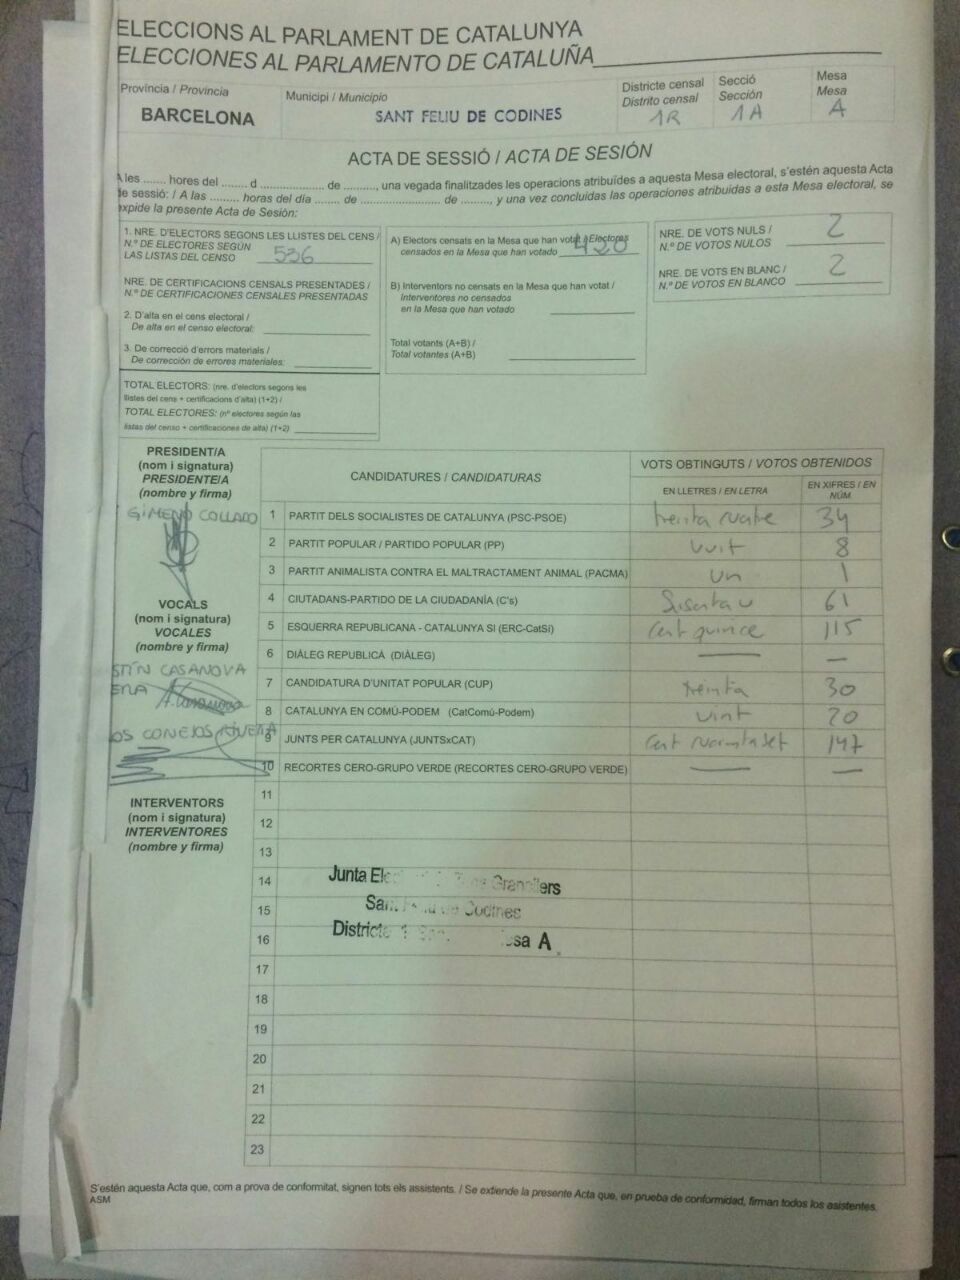 ELECCIONS AL PARLAMENT DE CATALUNYA
ELECCIONES AL PARLAMENTO DE CATALUÑA
Província / Provincia
BARCELONA
Municipi / Municipio
SANT FELIU DE CODINES
Districte censal
Distrito censal
1R
Secció
Sección
1A
Mesa
Mesa
A
ACTA DE SESSIÓ / ACTA DE SESIÓN
A les ........ hores del ........ d .................... de .........., una vegada finalitzades les operacions atribuïdes a aquesta Mesa electoral, s'estén aquesta Acta
de sessió: / A las ......... horas del día ....... de ......................... de ........, y una vez concluidas las operaciones atribuidas a esta Mesa electoral, se
expide la presente Acta de Sesión:
1. NRE. D'ELECTORS SEGONS LES LLISTES DEL CENS /
N.º DE ELECTORES SEGÚN
LAS LISTAS DEL CENSO 536
NRE. DE CERTIFICACIONS CENSALS PRESENTADES /
N.º DE CERTIFICACIONES CENSALES PRESENTADAS
2. D'alta en el cens electoral /
De alta en el censo electoral:
3. De correcció d'errors materials /
De corrección de errores materiales:
TOTAL ELECTORS: (nre. d'electors segons les
llistes del cens + certificacions d'alta) (1+2) /
TOTAL ELECTORES: (nº electores según las
listas del censo + certificaciones de alta) (1+2)
A) Electors censats en la Mesa que han votat / Electores
censados en la Mesa que han votado 420
B) Interventors no censats en la Mesa que han votat /
Interventores no censados
en la Mesa que han votado
Total votants (A+B) /
Total votantes (A+B)
NRE. DE VOTS NULS /
N.º DE VOTOS NULOS 2
NRE. DE VOTS EN BLANC /
N.º DE VOTOS EN BLANCO 2
PRESIDENT/A
(nom i signatura)
PRESIDENTE/A
(nombre y firma)
GIMENO COLLADO
VOCALS
(nom i signatura)
VOCALES
(nombre y firma)
STÍN CASANOVA
ENA
OS CONEJOS RIVERA
INTERVENTORS
(nom i signatura)
INTERVENTORES
(nombre y firma)
CANDIDATURES / CANDIDATURAS
VOTS OBTINGUTS / VOTOS OBTENIDOS
EN LLETRES / EN LETRA
EN XIFRES / EN
NÚM
1 PARTIT DELS SOCIALISTES DE CATALUNYA (PSC-PSOE) trenta quatre 34
2 PARTIT POPULAR / PARTIDO POPULAR (PP) vuit 8
3 PARTIT ANIMALISTA CONTRA EL MALTRACTAMENT ANIMAL (PACMA) un 1
4 CIUTADANS-PARTIDO DE LA CIUDADANÍA (C's) Sisanta u 61
5 ESQUERRA REPUBLICANA - CATALUNYA SI (ERC-CatSí) Cent quince 115
6 DIÀLEG REPUBLICÀ (DIÀLEG) — —
7 CANDIDATURA D'UNITAT POPULAR (CUP) trenta 30
8 CATALUNYA EN COMÚ-PODEM (CatComú-Podem) Vint 20
9 JUNTS PER CATALUNYA (JUNTSxCAT) Cent quaranta set 147
10 RECORTES CERO-GRUPO VERDE (RECORTES CERO-GRUPO VERDE) — —
11
12
13
14
15
16
17
18
19
20
21
22
23
Junta Granollers
Sant Feliu de Codines
Districte 1 Mesa A
S'estén aquesta Acta que, com a prova de conformitat, signen tots els assistents. / Se extiende la presente Acta que, en prueba de conformidad, firman todos los asistentes.
ASM